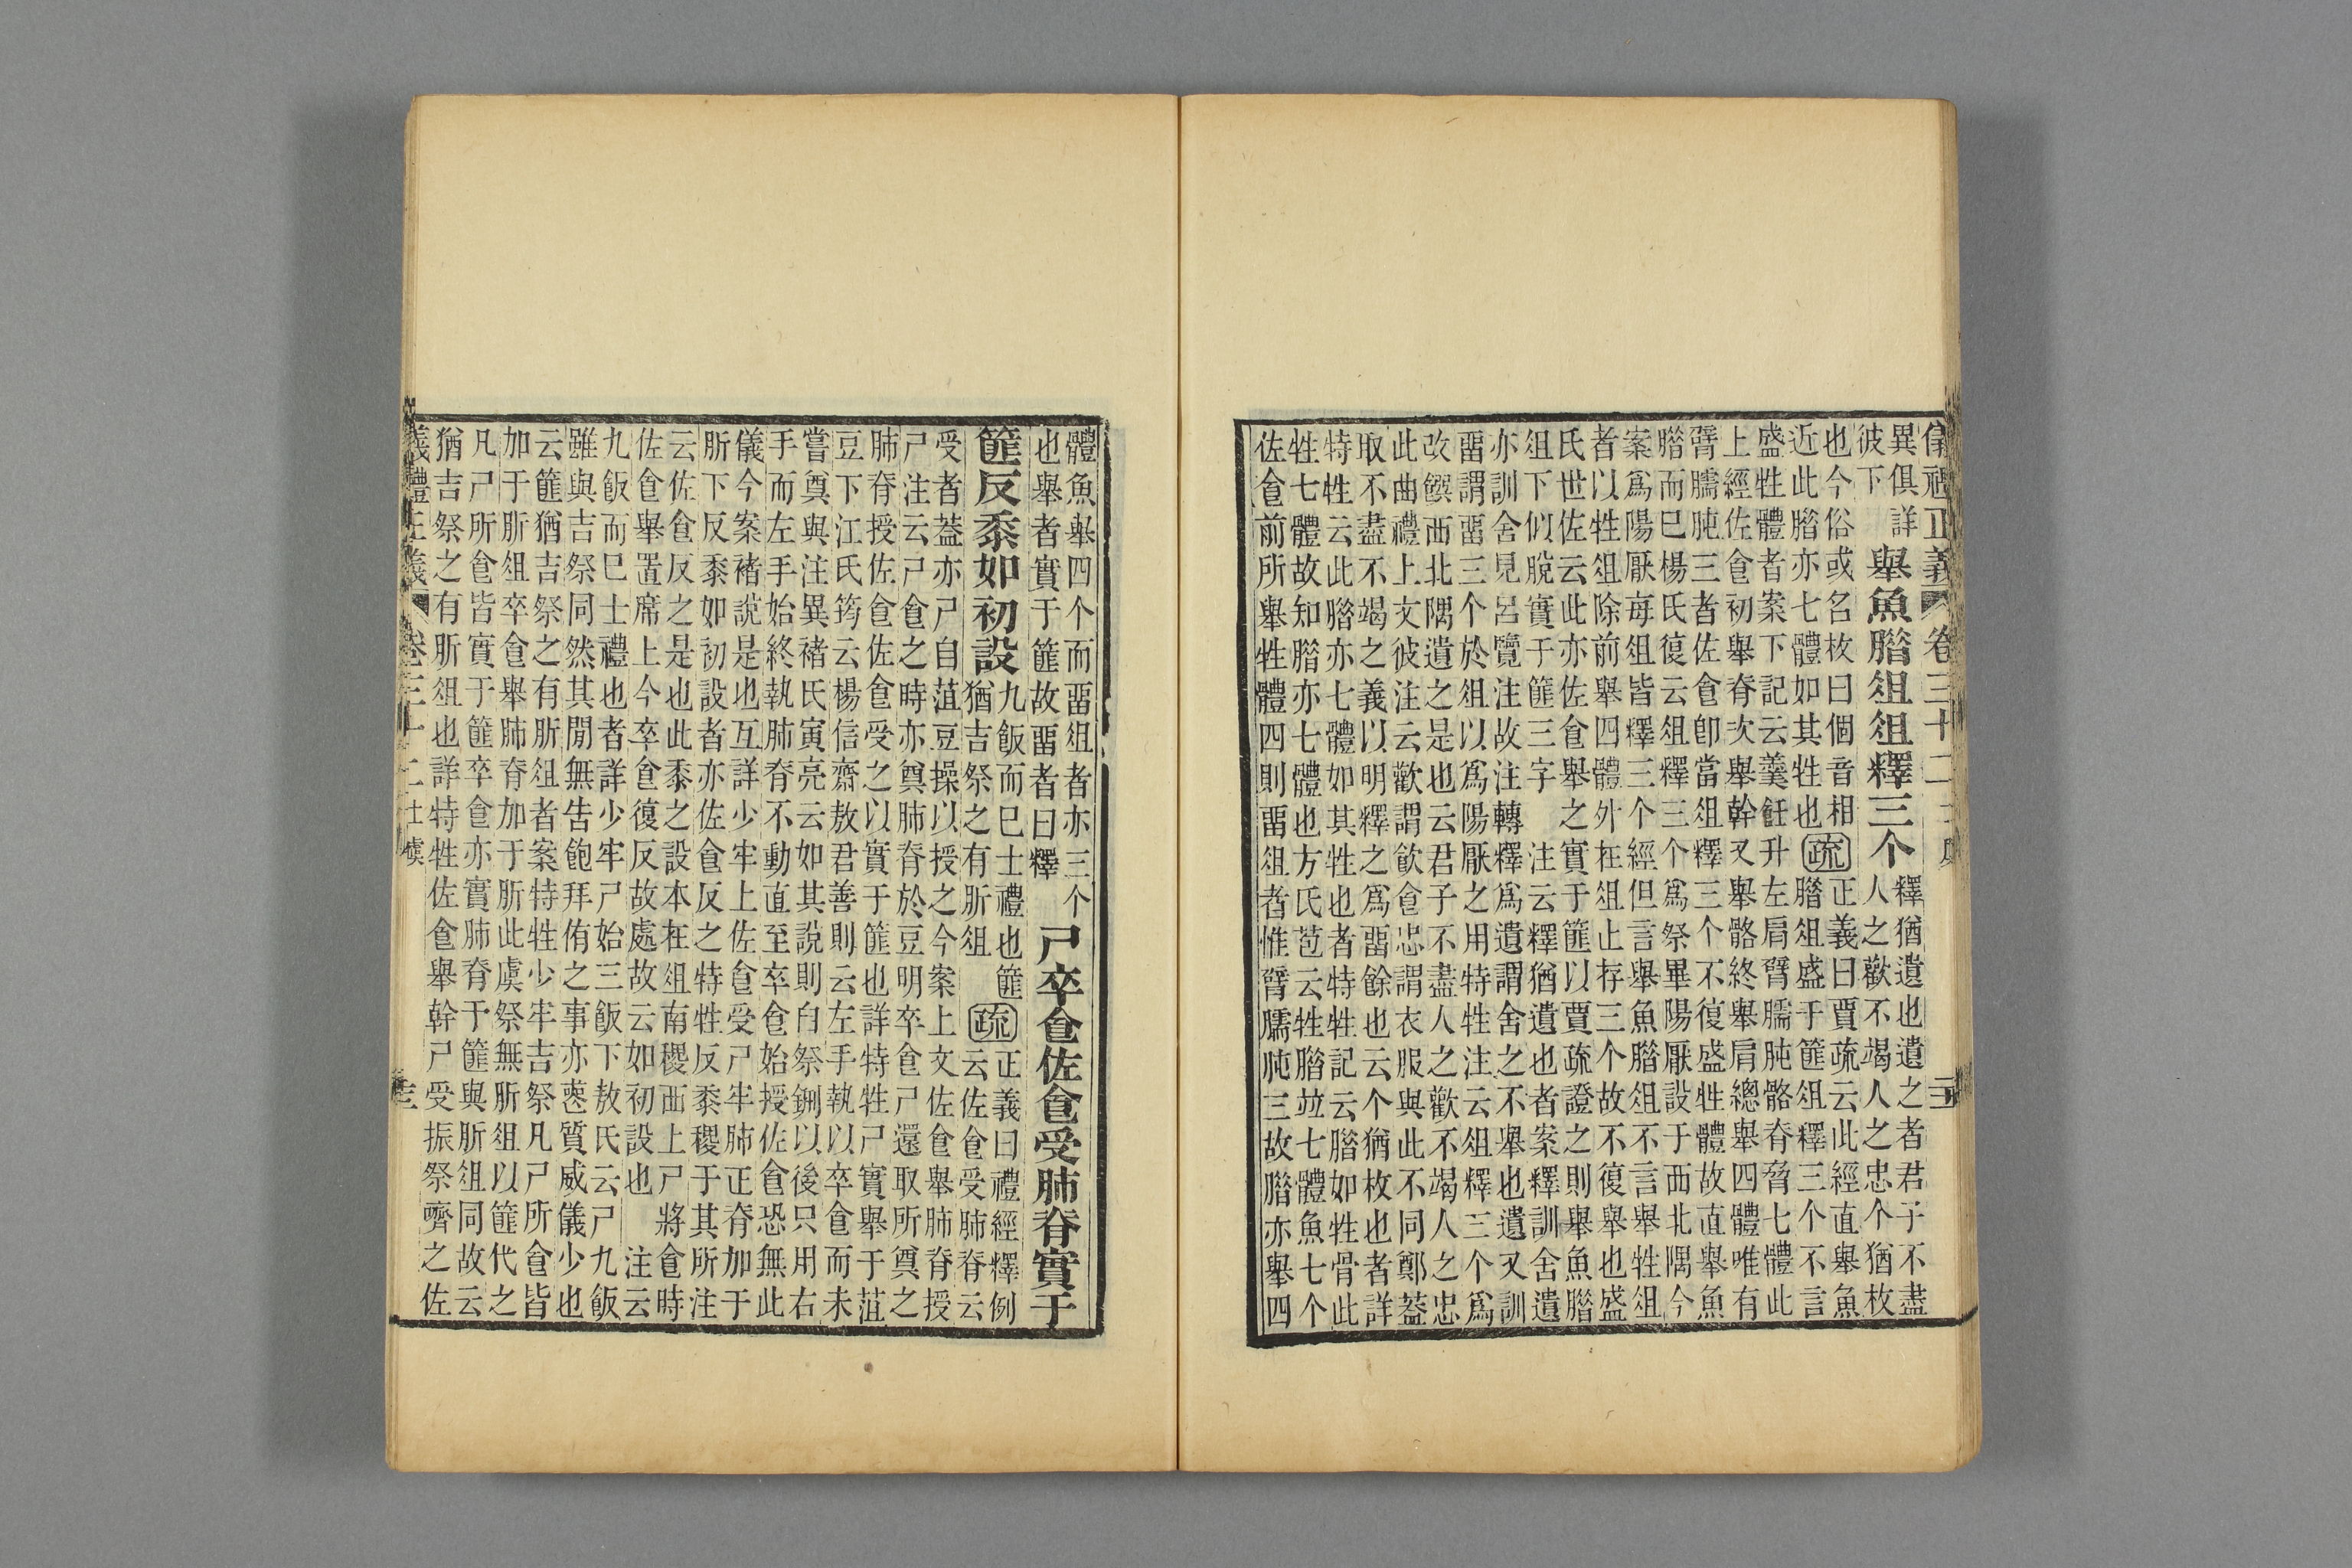 儀禮正義 卷三十二 士虞
異俱詳
彼下
舉魚腊俎俎釋三个
釋猶遺也遺之者君子不盡
人之歡不竭人之忠个猶枚
也今俗或名枚曰個音相
近此腊亦七體如其牲也
疏
正義曰賈疏云此經直舉魚
腊俎盛于篚俎釋三个不言
盛牲體者案下記云羹飪升左肩臂臑肫骼脊脅七體此
上經佐食初舉脊次舉幹又舉骼終舉肩總舉四體唯有
臂臑肫三者佐食卽當俎釋三个不復盛牲體故直舉魚
腊而已楊氏復云俎釋三个爲祭畢陽厭設于西北隅今
案爲陽厭每俎皆釋三个經但言舉魚腊俎不言舉牲俎
者以牲俎除前舉四體外在俎止存三个故不復舉也盛
氏世佐云此亦佐食舉之實于篚以賈疏證之則舉魚腊
俎下似脫實于篚三字 注云釋猶遺也者案釋訓舍遺
亦訓舍見呂覽注故注轉釋爲遺謂舍之不舉也遺又訓
畱謂畱三个於俎以爲陽厭之用特牲注云俎釋三个爲
改饌西北隅遺之是也云君子不盡人之歡不竭人之忠
此曲禮上文彼注云歡謂飮食忠謂衣服與此不同鄭蓋
取不盡不竭之義以明釋之爲畱餘也云个猶枚也者詳
特牲云此腊亦七體如其牲也者特牲記云腊如牲骨此
牲七體故知腊亦七體也方氏苞云牲腊竝七體魚七个
佐食前所舉牲體四則畱俎者惟臂臑肫三故腊亦舉四
體魚舉四个而畱俎者亦三个
也舉者實于篚故畱者曰釋
尸卒食佐食受肺脊實于
篚反黍如初設
九飯而已士禮也篚
猶吉祭之有肵俎
疏
正義曰禮經釋例
云佐食受肺脊云
受者蓋亦尸自菹豆操以授之今案上文佐食舉肺脊授
尸注云尸食之時亦奠肺脊於豆明卒食尸還取所奠之
肺脊授佐食佐食受之以實于篚也詳特牲尸實舉于菹
豆下江氏筠云楊信齋敖君善則云左手執以卒食而未
嘗奠與注異褚氏寅亮云如其說則自祭鉶以後只用右
手而左手始終執肺脊不動直至卒食始授佐食恐無此
儀今案褚說是也互詳少牢上佐食受尸牢肺正脊加于
肵下反黍如初設者亦佐食反之特牲反黍稷于其所注
云佐食反之是也此黍之設本在俎南稷西上尸將食時
佐食舉置席上今卒食復反故處故云如初設也 注云
九飯而已士禮也者詳少牢尸始三飯下敖氏云尸九飯
雖與吉祭同然其閒無告飽拜侑之事亦喪質威儀少也
云篚猶吉祭之有肵俎者案特牲少牢吉祭凡尸所食皆
加于肵俎卒食舉肺脊加于肵此虞祭無肵俎以篚代之
凡尸所食皆實于篚卒食亦實肺脊于篚與肵俎同故云
猶吉祭之有肵俎也詳特牲佐食舉幹尸受振祭嚌之佐
儀禮正義 卷三十二 士虞